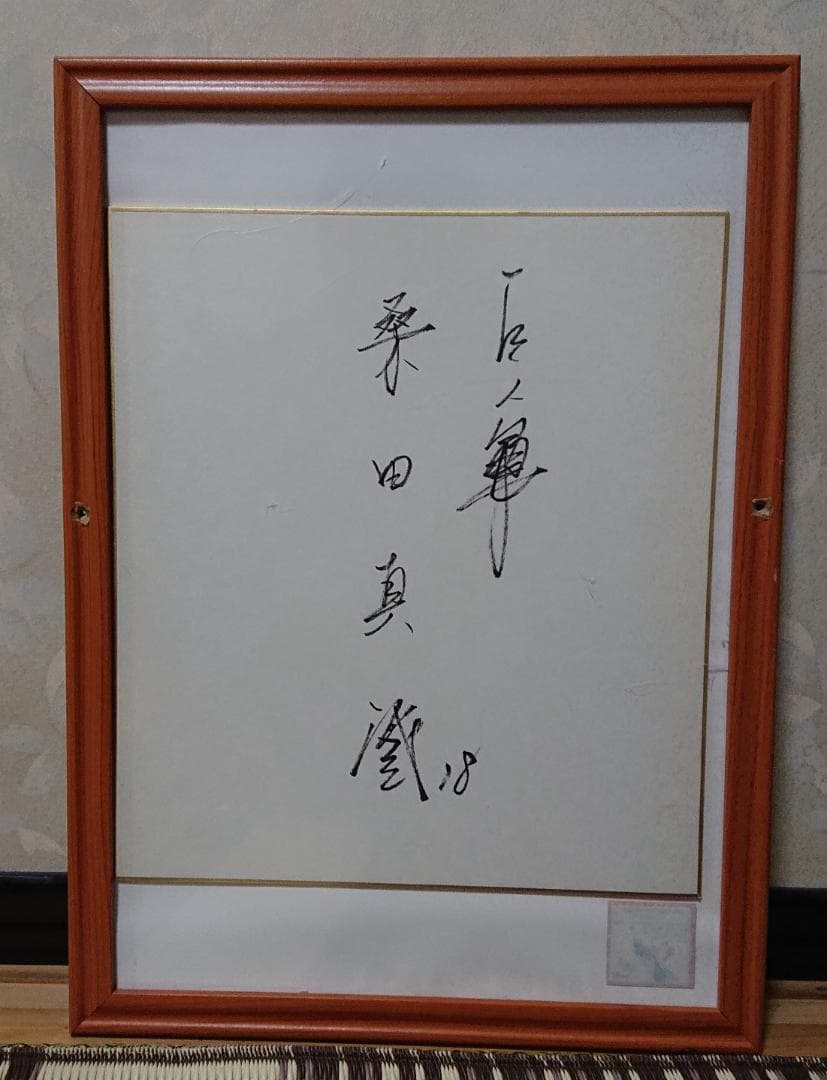 巨人軍
桑田真澄 18